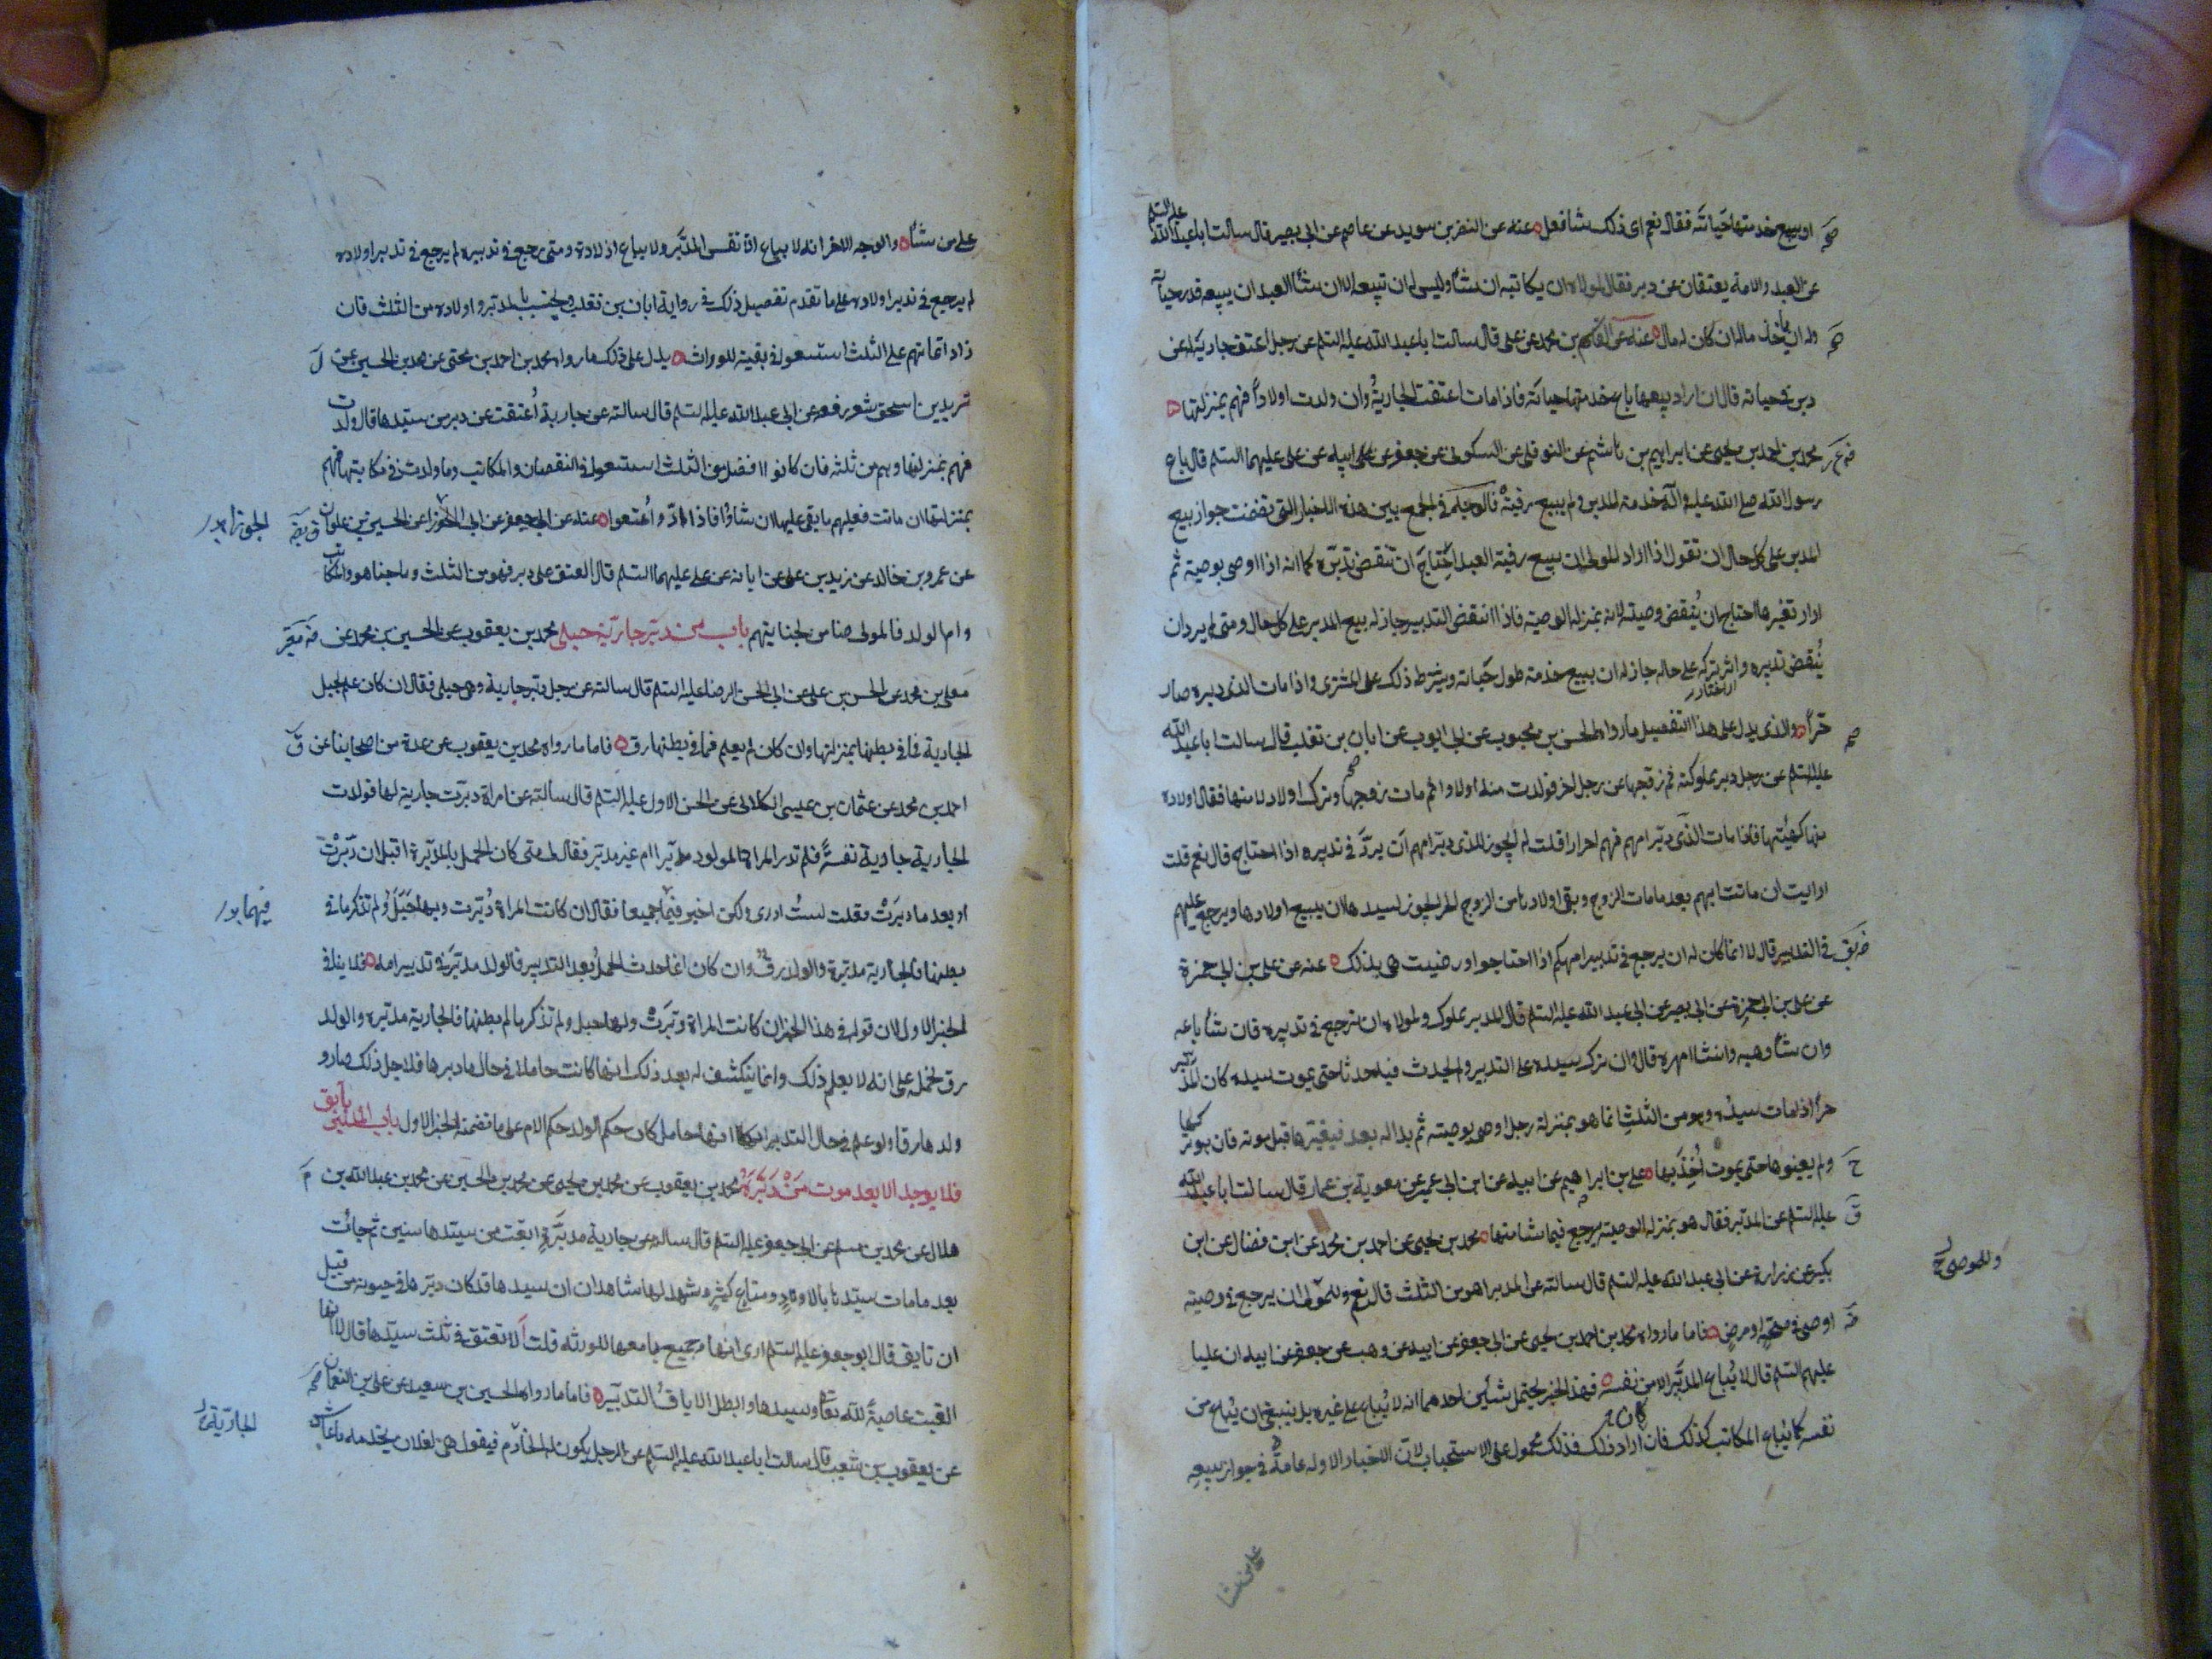 او يبيع خدمتها حياته فقال نعم اى ذلك شا فعل عنه عن النضر بن سويد عن عاصم عن ابى بصير قال سالت ابا عبد الله عليه السلم
عن العبد والامة يعتقان عن دبر فقال لمولاه ان يكاتبه ان شأ وليس له ان يبيعه الا ان شأ العبد ان يبيعه قدر حياته
وله ان ياخذ ماله ان كان له مال عنه عن القسم بن محمد عن على قال سالت ابا عبد الله عليه السلم عن رجل اعتق جارية له عن
دبر فى حياته قال ان اراد بيعها باع خدمتها حياته فاذا مات اعتقت الجارية وان ولدت اولاداً فهم بمنزلتها
محمد بن احمد بن يحيى عن ابراهيم بن هاشم عن النوفلى عن السكونى عن جعفر عن ابيه عن على عليهما السلم قال باع
رسول الله صلى الله عليه وآله خدمة المدبر ولم يبيع رقبته فالوجه فى الجمع بين هذه الاخبار التى تضمنت جواز بيع
المدبر على كل حال ان نقول اذا اراد المولى ان يبيع رقبة العبد احتاج ان ينقض تدبيره كما انه اذا اوصى بوصية ثم
اراد تغيرها احتاج ان ينقض وصيته لانه بمنزلة الوصية فاذا انتقض التدبير جاز له بيع المدبر على كل حال ومتى لم يرد ان
ينقض تدبيره واثر تركه على حاله جاز له ان يبيع خدمته طول حياته ويشرط ذلك على المشترى واذا مات الذى دبره صار
حراً والذى يدل على هذا التفصيل ما رواه الحسن بن محبوب عن ابى ايوب عن ابان بن تغلب قال سالت ابا عبد الله
عليه السلم عن رجل دبر مملوكته ثم زوجها عن رجل اخر فولدت منه اولادا ثم مات زوجها وترك اولاده منها فقال اولاده
منها كهيئتها فاذا مات الذى دبر امهم فهم احرار قلت له يجوز للذى دبر امهم ان يردّ فى تدبيره اذا احتاج قال نعم قلت
ارايت ان ماتت امهم بعد ما مات الزوج وبقى اولادها من الزوج الحر ايجوز لسيدها ان يبيع اولادها ويرجع عليهم
فى التدبير قال لا انما كان له ان يرجع فى تدبير امهم اذا احتاج ورضيت هى بذلك عنه عن على بن ابى حمزة
عن على بن ابى حمزة عن ابى بصير عن ابى عبد الله عليه السلم قال المدبر مملوك ولمولاه ان يرجع فى تدبيره فان شأ باعه
وان شأ وهبه وان شا امهره قال وان تركه سيده على التدبير ولم يحدث فيه حدثا حتى يموت سيده كان المدبر
حراً اذا مات سيده وهو من الثلث انما هو بمنزلة رجل اوصى بوصية ثم بدا له بعد فيغيرها قبل موته فان هو تركها
ولم يغيرها حتى يموت أخذ بها على بن ابراهيم عن ابيه عن ابن ابى عمير عن معوية بن عمار قال سالت ابا عبد الله
عليه السلم عن المدبر فقال هو بمنزلة الوصية يرجع فيما شا منها محمد بن يحيى عن احمد بن محمد عن ابن فضال عن ابن
بكير عن زرارة عن ابى عبد الله عليه السلم قال سالته عن المدبر اهو من الثلث قال نعم وللموصى ان يرجع فى وصيته
وللموصى
اوصى فى صحة او مرض فاما ما رواه محمد بن احمد بن يحيى عن ابى جعفر عن ابيه عن وهب عن جعفر عن ابيه ان عليا
عليهم السلم قال لا يُباع المدبر الا من نفسه فهذا الخبر يحتمل شئين احدهما انه لا يُباع على غيره بل ينبغى ان يُباع من
نفسه كما يُباع المكاتب كذلك فان اراد ذلك فذلك محمول على الاستحباب لان الاخبار الاوله عامة فى جواز بيعه
على من شا
على من شأ والوجه الاخر انه لا يباع الا نفس المدبر ولا يباع اولاده ومتى رجع فى تدبيره لم يرجع فى تدبير اولاده
لم يرجع فى تدبير اولاده على ما تقدم تفصيل ذلك فى رواية ابان بن تغلب ويحتسب المدبر واولاده من الثلث فان
زاد اثمانهم على الثلث استسعوا فى بقيته للورثه يدل على ذلك ما رواه محمد بن احمد بن يحيى عن محمد بن الحسين عن
يزيد بن اسحق شعر رفعه عن ابى عبد الله عليه السلم قال سالته عن جارية أعتقت عن دبر من سيدها قال ولدت
فهم بمنزلتها وهم من ثلثه فان كانوا افضل من الثلث استسعوا فى النقصان والمكاتب وما ولدت فى مكاتبتها فهم
بمنزلتها ان ماتت فعليهم ما بقى عليها ان شاؤا فاذا ادّوا أعتقوا عنه عن ابى جعفر عن ابى الجوزا عن الحسين بن علوان
الجوزا
عن عمرو بن خالد عن زيد بن على عن ابائه عن على عليهما السلم قال العتق على دبر فهو من الثلث وما جنا هو والمكاتب
وام الولد فالمولى ضامن لجنايتهم باب من دبر جارية حبلى محمد بن يعقوب عن الحسين بن محمد عن
معلى بن محمد عن الحسن بن على عن ابى الحسن الرضا عليه السلم قال سالته عن رجل دبر جارية وهى حبلى فقال ان كان علم بحبل
الجارية فما فى بطنها بمنزلتها وان كان لم يعلم فما فى بطنها رق فاما ما رواه محمد بن يعقوب عن عدة من اصحابنا عن
احمد بن محمد عن عثمان بن عيسى الكلابى عن الحسن الاول عليه السلم قال سالته عن امراة دبرت جارية لها فولدت
الجارية جارية نفسة فلم تدر المراة المولود مدبرا ام غير مدبر فقال لى متى كان الحمل بالمدبرة اقبل ان دبرت
او بعد ما دبرت فقلت لست ادرى ولكن اخبر فيهما جميعا فقال ان كانت المراة دبرت وبها حبل ولم تذكر ما فى
فيهما
بطنها فالجارية مدبرة والولد رق وان كان انما حدث الحمل بعد التدبير فالولد مدبر فى تدبير امه فلا ينافى
الخبر الاول لان قوله فى هذا الخبر ان كانت المراة دبرت ولها حبل ولم تذكر ما فى بطنها فالجارية مدبره والولد
رق نحمله على انه لا يعلم ذلك وانما ينكشف له بعد ذلك انها كانت حاملا فى حال ما دبرها فلاجل ذلك صار
ولدها رقا ولو علم فى حال التدبير انها حامل كان حكم الولد حكم الام على ما تضمنه الخبر الاول باب المدبر يأبق
فلا يوجد الا بعد موت من دبره محمد بن يعقوب عن محمد بن يحيى عن محمد بن الحسين عن محمد بن عبد الله بن
هلال عن محمد بن مسلم عن ابى جعفر عليه السلم قال سالته عن جارية مدبرة ابقت من سيدها سنين ثم جائت
بعد ما مات سيدها بالاولاد ومتاع كثيره شهد لها شاهدان ان سيدها قد كان دبرها فى حيوته من قبل
ان تابق قال ابو جعفر عليه السلم ارى انها وجميع ما معها للورثه قلت الا تعتق فى ثلث سيدها قال لا انها
ابقت عاصية لله تعا وسيدها وابطل الاباق التدبير فاما ما رواه الحسين بن سعيد عن على بن النعمان
عن يعقوب بن شعيب قال سالت ابا عبد الله عليه السلم عن الرجل يكون له الخادم فيقول هى لفلان يخدمه ما عاش
الجارية